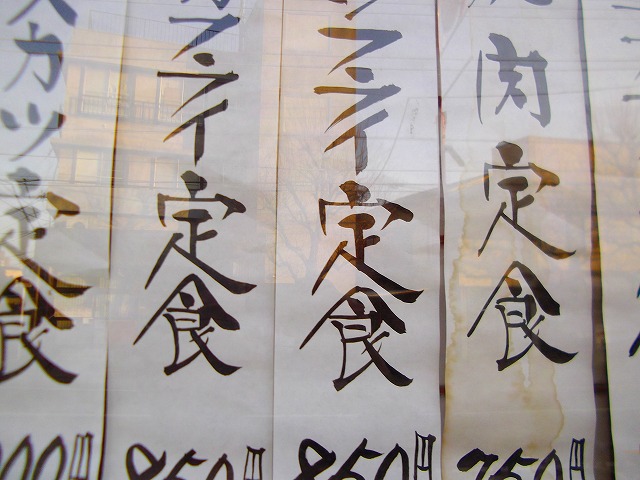 肉定食 750円
フライ定食 850円
フライ定食 850円
スカツ定食 00円